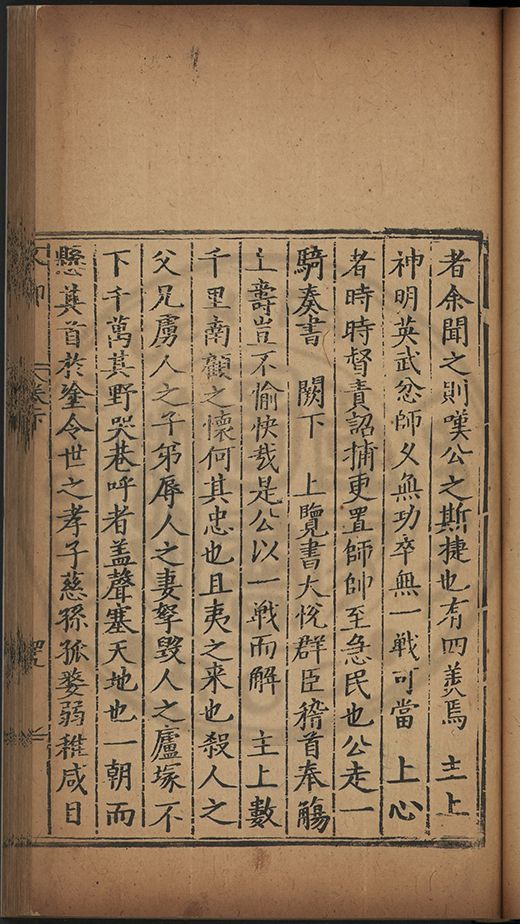 者余聞之則嘆公之斯捷也有四美焉　主上
神明英武忿師久無功卒無一戰可當　上心
者時時督責詔捕更置師帥至急民也公走一
騎奏書　闕下　上覽書大悅群臣稽首奉觴
上壽豈不愉快哉是公以一戰而解　主上數
千里南顧之懷何其忠也且夷之来也殺人之
父兄虜人之子弟辱人之妻孥毀人之廬塚不
下千萬其野哭巷呼者盖聲塞天地也一朝而
懸其首於塗令世之孝子慈孫孤嫠弱稚咸日